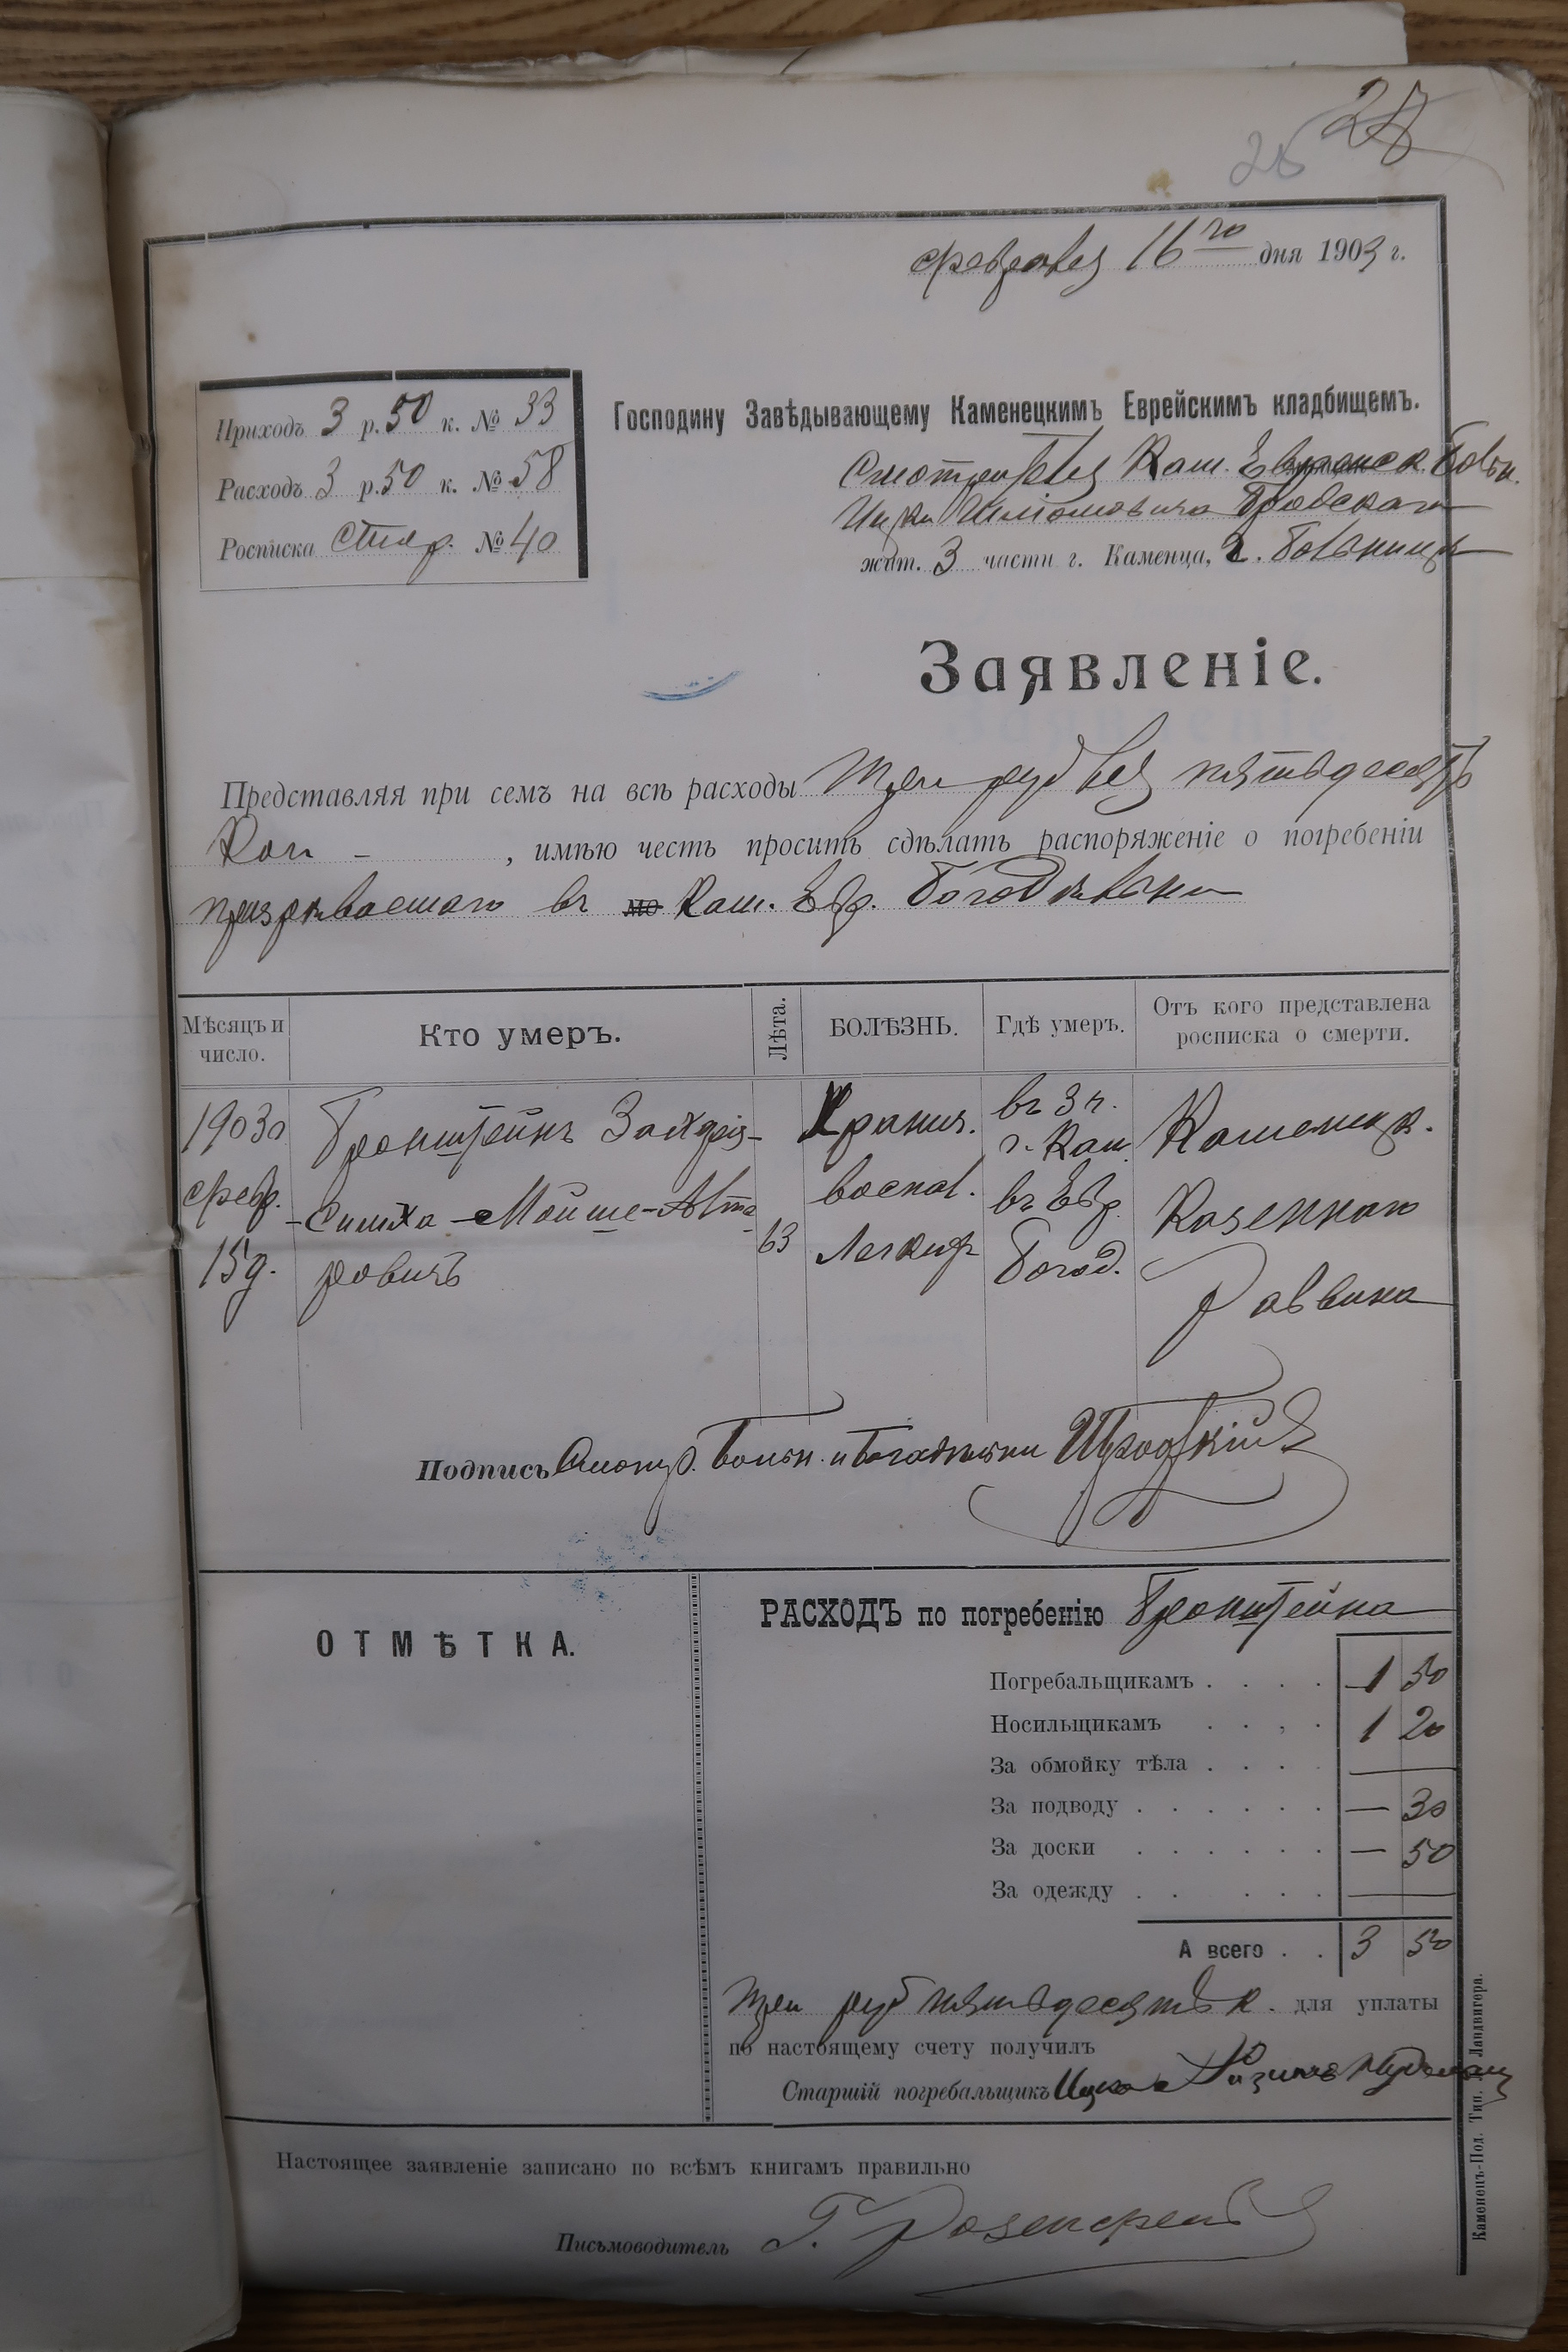 28
26
февраля 16го дня 1903 г.
Приходъ 3 р. 50 к. № 33
Расходъ 3 р. 50 к. № 58
Росписка Стар. № 40
Господину Завѣдывающему Каменецкимъ Еврейскимъ кладбищемъ.
Смотрителя Кам. Еврейск. Больн.
Ицки Шліомовича Бродскаго
жит. 3 части г. Каменца, Больница
Заявленіе.
Представляя при семъ на всѣ расходы три рубля пятьдесятъ
Коп – , имѣю честь просить сдѣлать распоряженіе о погребеніи
призрѣваемаго въ Кам. Евр. Богодѣльни
Мѣсяцъ и число.
Кто умеръ.
Лѣта.
БОЛѢЗНЬ.
Гдѣ умеръ.
Отъ кого представлена росписка о смерти.
1903 г. Бронштейнъ Хранич. въ 3 ч. Каменецк.
г. Кам.
февр. -Симха-Мойше-Альте воспал. въ Евр. Казеннаго
15 д. ровичъ 63 Легкихъ Богод. Раввина
Подпись Смотр. Больн. и Богадѣльни ИБродскій
ОТМѢТКА.
РАСХОДЪ по погребенію Бронштейна
Погребальщикамъ . . . . 1 50
Носильщикамъ . . . . 1 20
За обмойку тѣла . . . . —
За подводу . . . . . . — 30
За доски . . . . . . — 50
За одежду . . . . . —
А всего . . 3 50
три руб пятьдесятъ к. для уплаты
по настоящему счету получилъ
Старшій погребальщикъ Ицко
Настоящее заявленіе записано по всѣмъ книгамъ правильно
Письмоводитель Г. Розенфельд
Каменецъ-Под. Тип. Ландвигера.